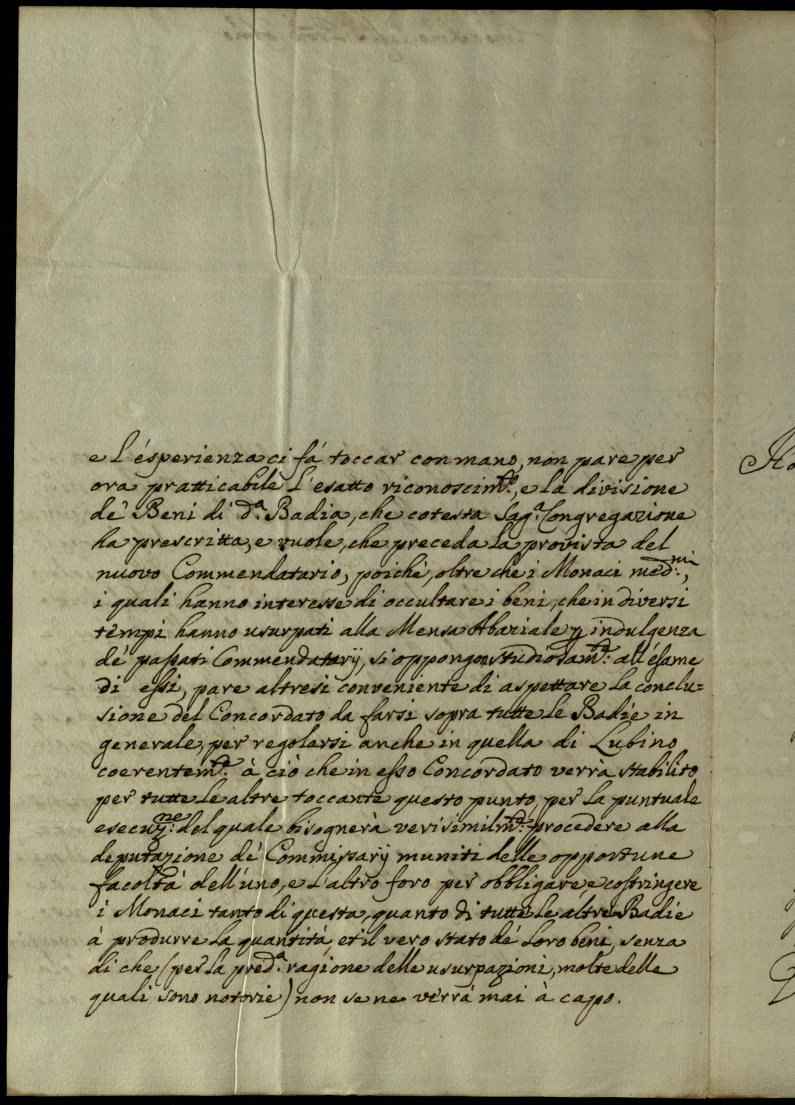 e l'esperienza ci fá toccar con mano, non pare per
ora pratticabile l'esatto riconoscim.to, e la divisione
de' Beni di d.a Badia, che cotesta Sag.a Congregazione
ha prescritta, e vuole, che preceda la provista del
nuovo Commendatario, poiché, oltre che i Monaci med.mi,
i quali hanno interesse di occultare i beni, che in diversi
tempi hanno usurpati alla Mensa Abaziale p indulgenza
de' passati Commendatarÿ, si oppongon studiosam.te all'esame
di essi, pare altresi conveniente di aspettare la conclu=
sione del Concordato da farsi sopra tutte le Badie in
generale, per regolarsi anche in quella di Lubino
coerentem.te à ciò che in esso Concordato verrà stabilito
per tutte le altre toccante questo punto, per la puntuale
esecuz.ne del quale bisognerà verisimilm.te procedere alla
deputazione de' Commissarÿ muniti delle opportune
facoltà dell'uno, e l'altro foro per obbligare, e costringere
i Monaci tanto di questa, quanto di tutte le altre Badie
à produrre la quantità, et il vero stato de' loro beni, senza
di che (per la pred.a ragione delle usurpazioni, molte delle
quali sono notorie) non se ne verrà mai à capo.